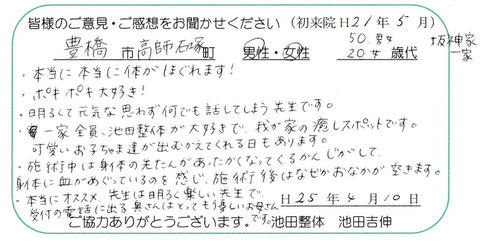 皆様のご意見・ご感想をお聞かせください（初来院日21年5月）
豊橋市高師石塚町 男性・女性 50.男女 20女 歳代 坂神家一家
・本当に本当に体がほぐれます！
・ポキポキ大好き！
・明るくて元気な思わず何でも話してしまう先生です。
・一家全員、池田整体が大好きで、我が家の癒しスポットです。
可愛いお子ちゃま達が出むかえてくれる日もあります。
・施術中は身体の先たんがあったかくなってくるかんじがして、
身体に血がめぐっているのを感じ、施術後はなぜかおなかが空きます。
・本当にオススメ 先生は明るく楽しい先生で、
受付の電話に出る奥さんはとってもう優しいお母さんです。
日25年4月10日
ご協力ありがとうございます。 池田整体 池田吉伸